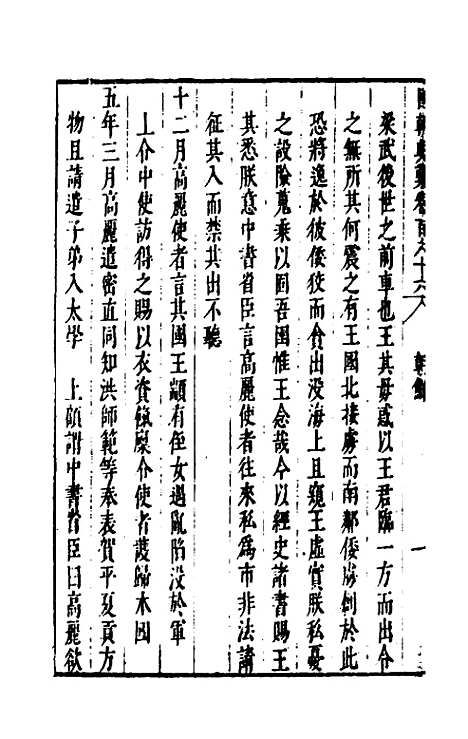 國朝典彙卷百六十六 朝鮮 一
梁武後世之前車也王其毋惑以王君臨一方而出令
之無所其何震之有王國北接虜而南鄰倭虜創於此
恐將逸於彼倭狡而會出没海上且窺王虛實朕私憂
之設險蒐乘以固吾圉惟王念哉今以經史諸書賜王
其悉朕意中書省臣言高麗使者往來私為市非法請
征其入而禁其出不聽
十二月高麗使者言其國王顓有侄女遇亂陷没於軍
上令中使訪得之賜以衣資餼廩令使者護歸本國
五年三月高麗遣密直同知洪師範等奉表賀平夏貢方
物且請遣子弟入太學 上顧謂中書省臣曰高麗欲